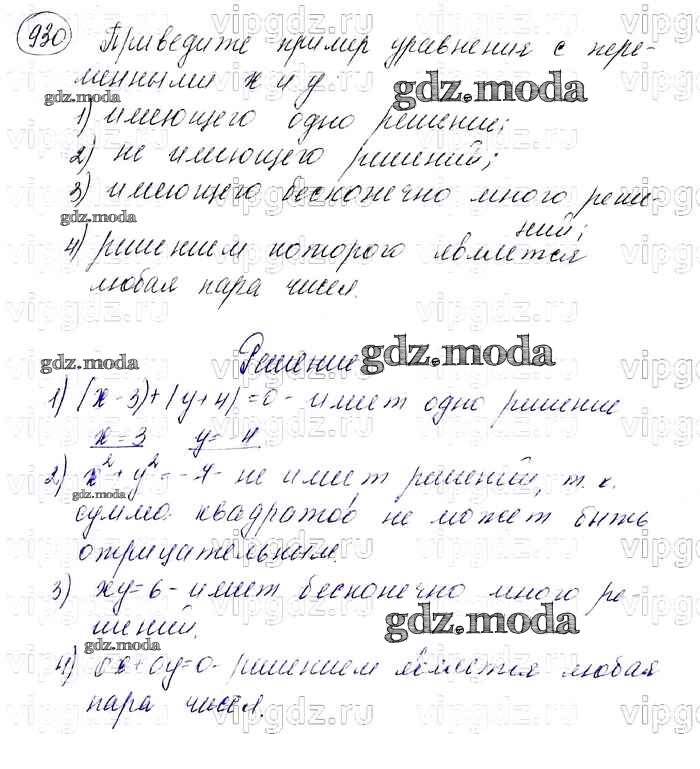 930 Приведите пример уравнения с пере-
менными x и y:
gdz.moda gdz.moda
1) имеющего одно решение;
2) не имеющего решений;
3) имеющего бесконечно много реше-
ний;
gdz.moda
4) решением которого является
любая пара чисел.
Решение
gdz.moda gdz.moda
1) |x-3|+|y+4|=0 - имеет одно решение
x=3 y=-4
2) x²+y²=-4- не имеет решений, т. к.
gdz.moda
сумма квадратов не может быть
отрицательным.
3) xy=6 - имеет бесконечно много ре-
шений.
gdz.moda
4) 0x+0y=0- решением является любая
пара чисел.